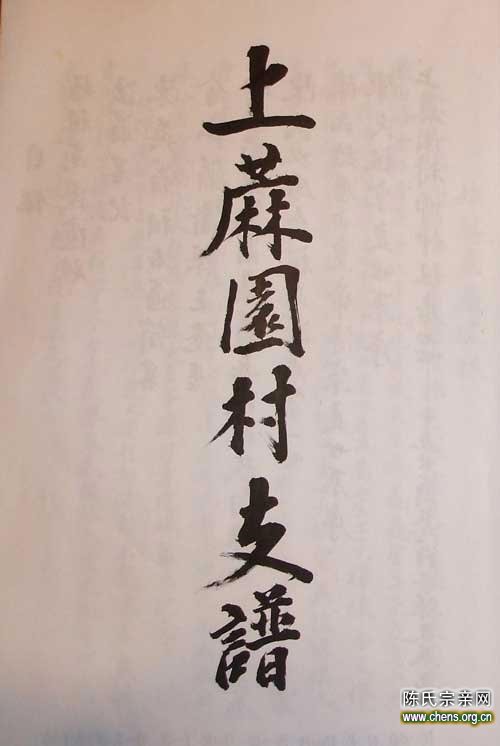 上蔴園村支譜
陈氏宗亲网
www.chens.org.cn